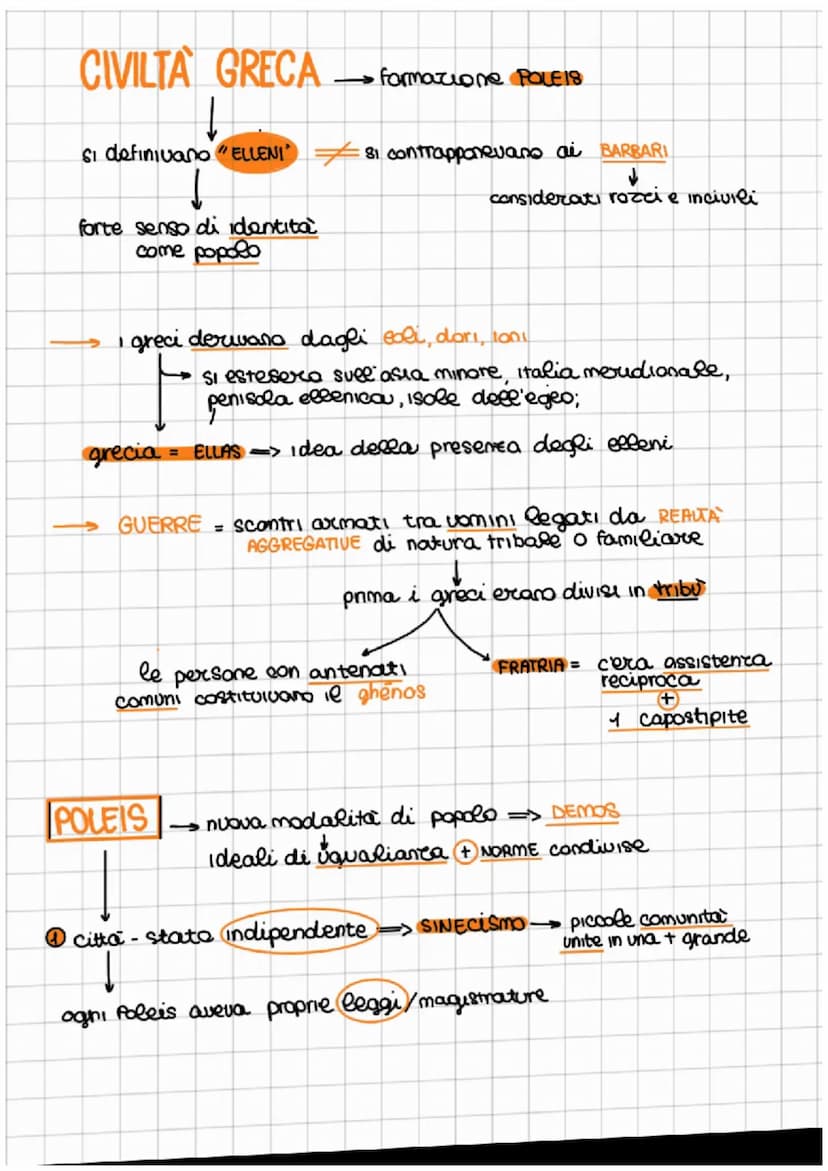 CIVILTÀ GRECA → formazione POLEIS
si definivano "ELLENI" ≠ si contrapponevano ai BARBARI
considerati rozzi e incivili
forte senso di identità
come popolo
→ i greci derivano dagli eoli, dori, ioni
→ si estesero sull'asia minore, italia meridionale,
penisola ellenica, isole dell'egeo;
grecia = ELLAS => idea della presenza degli elleni
→ GUERRE = scontri armati tra uomini legati da REALTÀ
AGGREGATIVE di natura tribale o familiare
prima i greci erano divisi in tribù
le persone con antenati
comuni costituivano il ghénos
FRATRIA = c'era assistenza
reciproca
+
1 capostipite
POLEIS → nuova modalità di popolo => DEMOS
ideali di uguaglianza + NORME condivise
1 città-stato indipendente => SINECISMO → piccole comunità
unite in una + grande
ogni Poleis aveva proprie leggi/magistrature